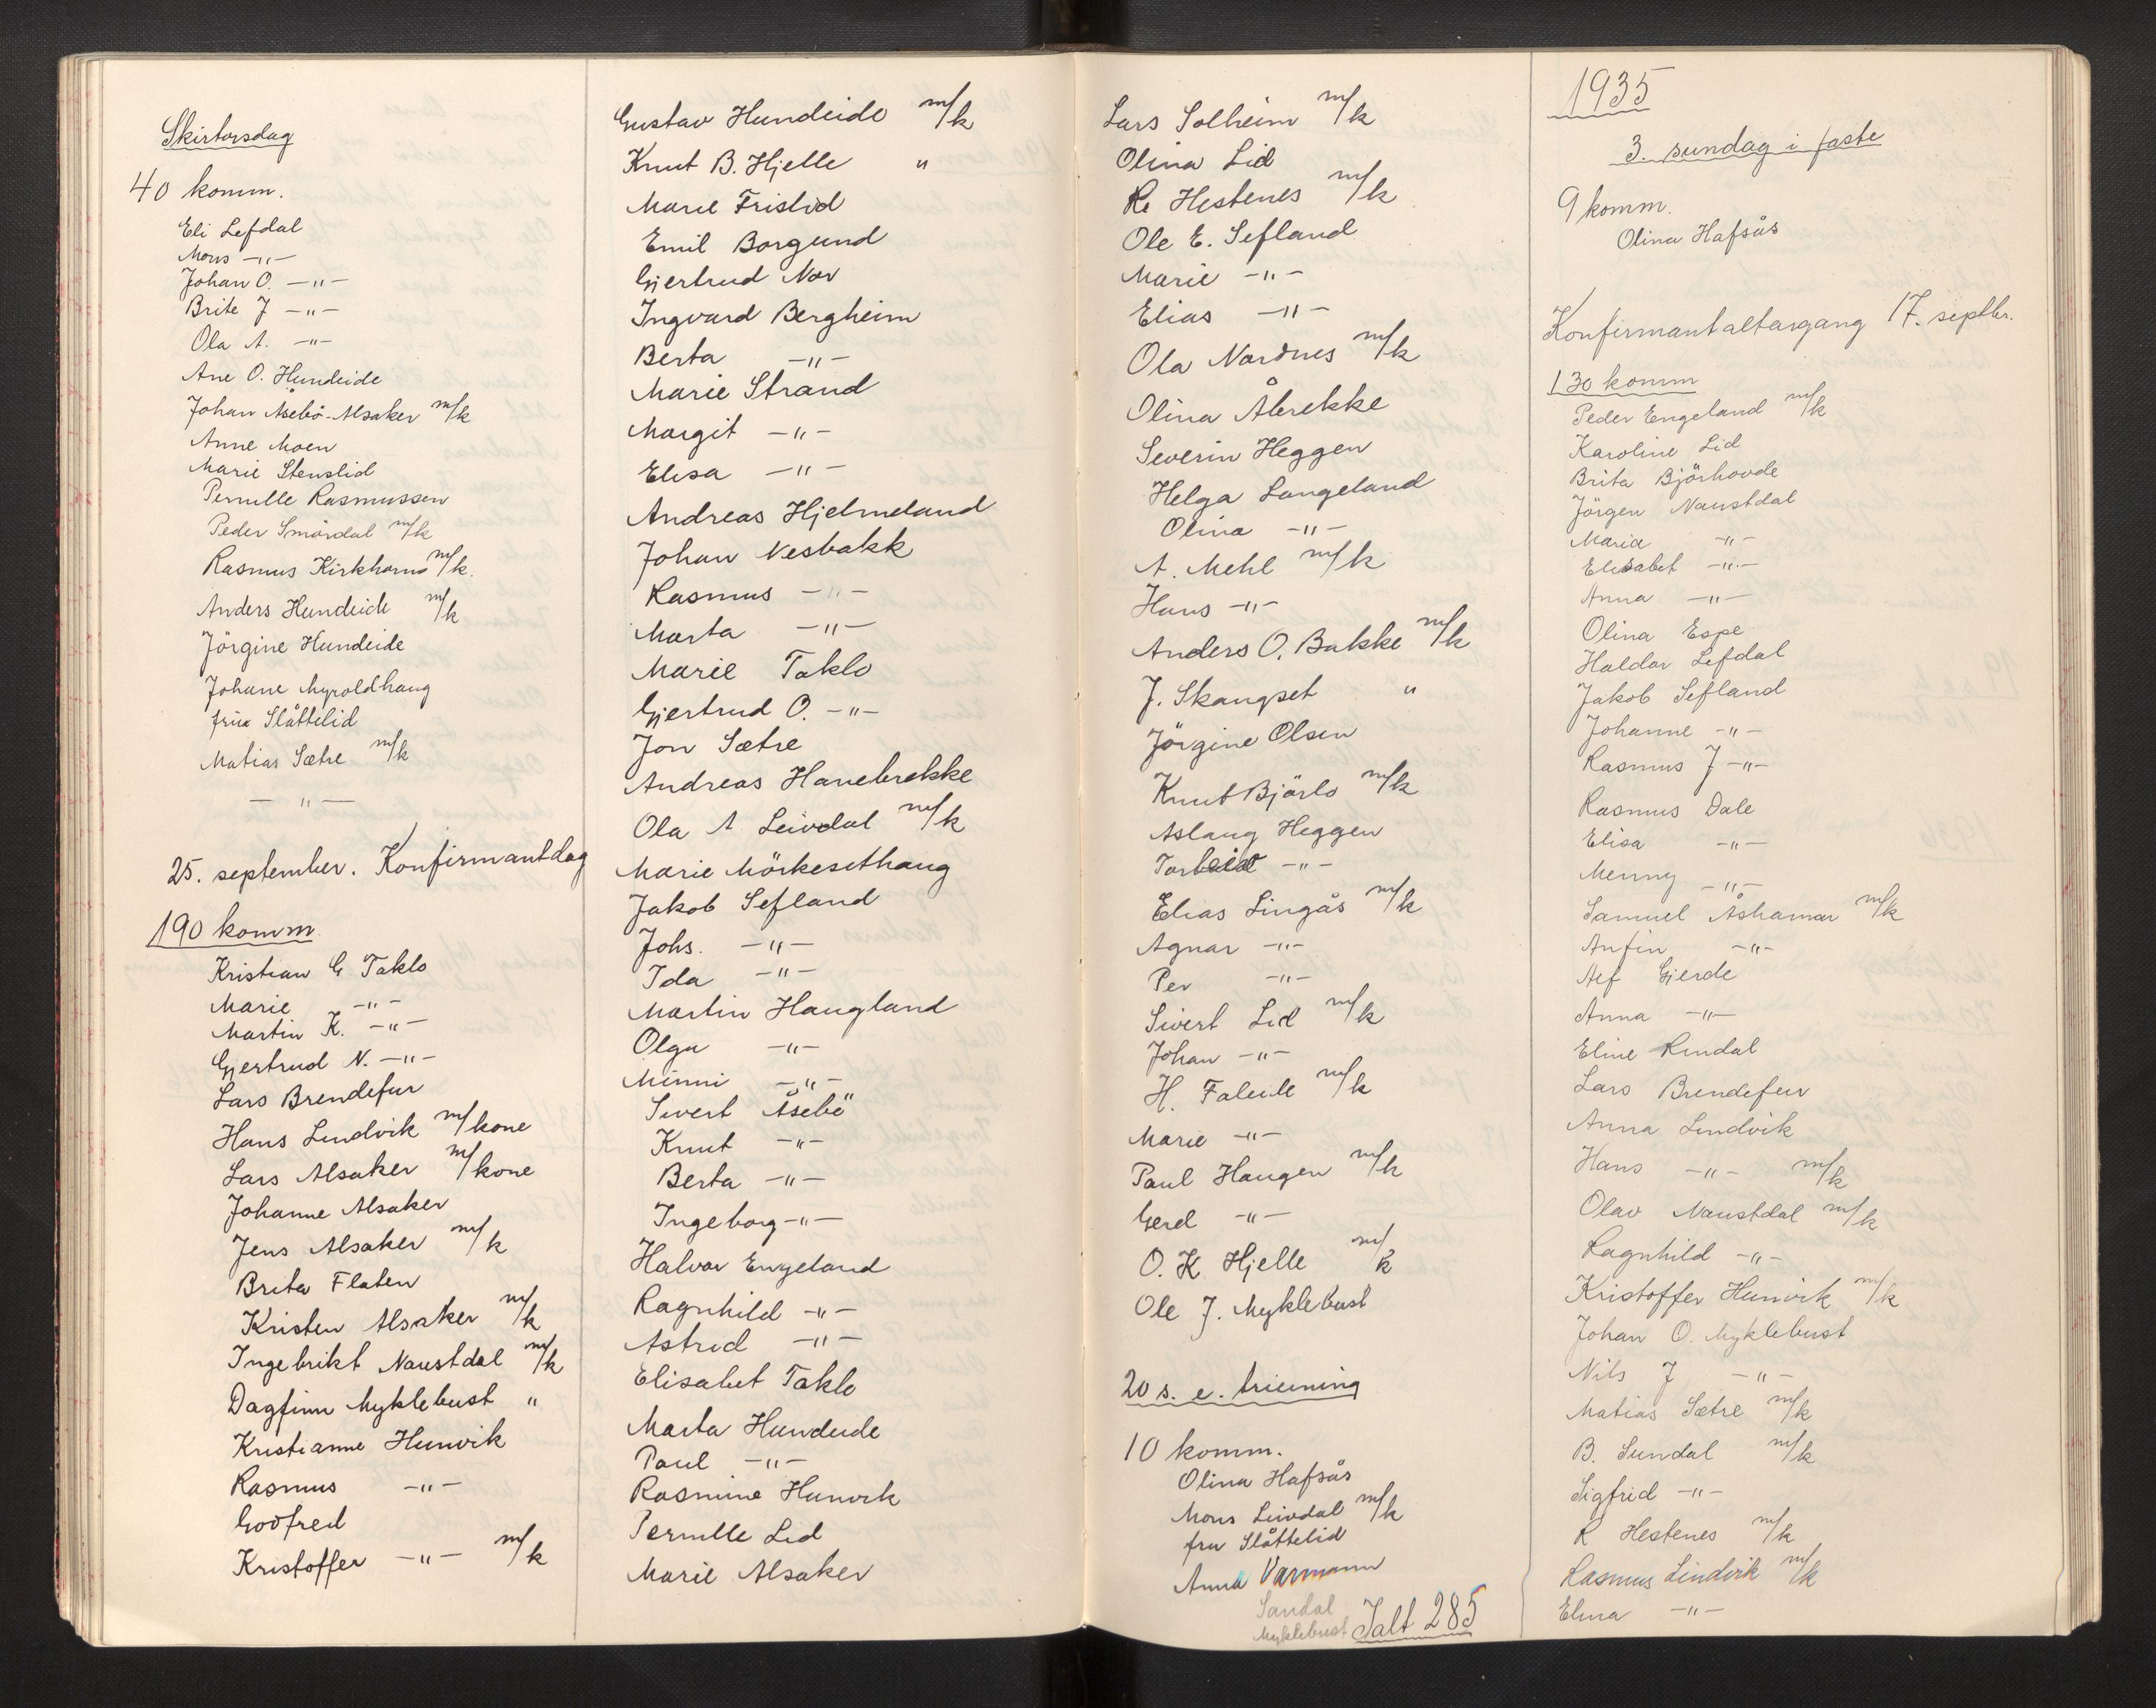 Skirtorsdag
40 komm.
Eli Lefdal
Mons -"-
Johan O. -"-
Brite J -"-
Ola A. -"-
Ane O. Hundeide
Johan Åsebö-Alsaker m/k
Anne Moen
Marie Stenslid
Pernille Rasmussen
Peder Smördal m/k
Rasmus Kirkhorns m/k.
Anders Hundeide m/k
Jörgine Hundeide
Johane Myroldhaug
frua Slåttelid
Matias Sætre m/k
- " -
25. september. Konfirmantdag
190 komm
Kristian G Taklo
Marie -"-
Martin K. -"-
Gjertrud N. -"-
Lars Brendefur
Hans Lindvik m/kone
Lars Alsaker m/kone
Johanne Alsaker
Jens Alsaker m/k
Brita Flaten
Kristen Alsaker m/k
Ingebrikt Naustdal m/k
Dagfinn Myklebust "
Kristianne Hunvik
Rasmus -"-
Godfred
Kristoffer -"- m/k
Gustav Hundeide m/k
Knut B. Hjelle "
Marie Frislid
Emil Borgund
Gjertrud Nor
Ingvard Bergheim
Berta -"-
Marie Strand
Margit -"-
Elisa -"-
Andreas Hjelmeland
Johan Nesbakk
Rasmus -"-
Marta -"-
Marie Taklo
Gjertrud O. -"-
Jon Sætre
Andreas Hanebrekke
Ola A Leivdal m/k
Marie Mörkesethaug
Jakob Sefland
Johs. -"-
Ida -"-
Martin Haugland
Olga -"-
Minni -"-
Sivert Åsebö
Knut -"-
Berta -"-
Ingeborg -"-
Halvor Engeland
Ragnhild -"-
Astrid -"-
Elisabet Taklo
Marta Hundeide
Paul -"-
Rasmine Hunvik
Pernille Lid
Marie Alsaker
Lars Solheim m/k
Olina Lid
R. Hestenes m/k
Ole E. Sefland
Marie -"-
Elias -"-
Ola Nordnes m/k
Olina Åbrekke
Severin Heggen
Helga Langeland
Olina -"-
A. Mehl m/k
Hans -"-
Anders O. Bakke m/k
J. Skangset "
Jörgine Olsen
Knut Bjårlo m/k
Aslaug Heggen
-"-
Elias Lingås m/k
Agnar -"-
Per -"-
Sivert Lid m/k
Johan -"-
H. Faleide m/k
Marie -"-
Paul Haugen m/k
Gerd -"-
O. K. Hjelle m/k
Ole J. Myklebust
20 s. e. treining
10 komm.
Olina Hafsås
Mons Leivdal m/k
fru Slåttelid
Anna Varmann
Sandal
Myklebust
Ialt 285
1935
3. sundag i faste
9 komm.
Olina Hafsås
Konfirmantaltargang 17. septbr.
130 komm
Peder Engeland m/k
Karoline Lid
Brita Björhovde
Jörgen Naustdal
Maria -"-
Elisabet -"-
Anna -"-
Olina Espe
Haldor Lefdal
Jakob Sefland
Johanne -"-
Rasmus J -"-
Rasmus Dale
Elisa -"-
Menny -"-
Samuel Åshamar m/k
Anfin -"-
Alf Gjerde
Anna -"-
Eline Rindal
Lars Brendefur
Anna Lindvik
Hans -"- m/k
Olav Naustdal m/k
Ragnhild -"-
Kristoffer Hunvik m/k
Johan O. Myklebust
Nils J -"-
Matias Sætre m/k
B. Sundal m/k
Sigfrid -"-
R Hestenes m/k
Rasmus Lindvik m/k
Elina -"-